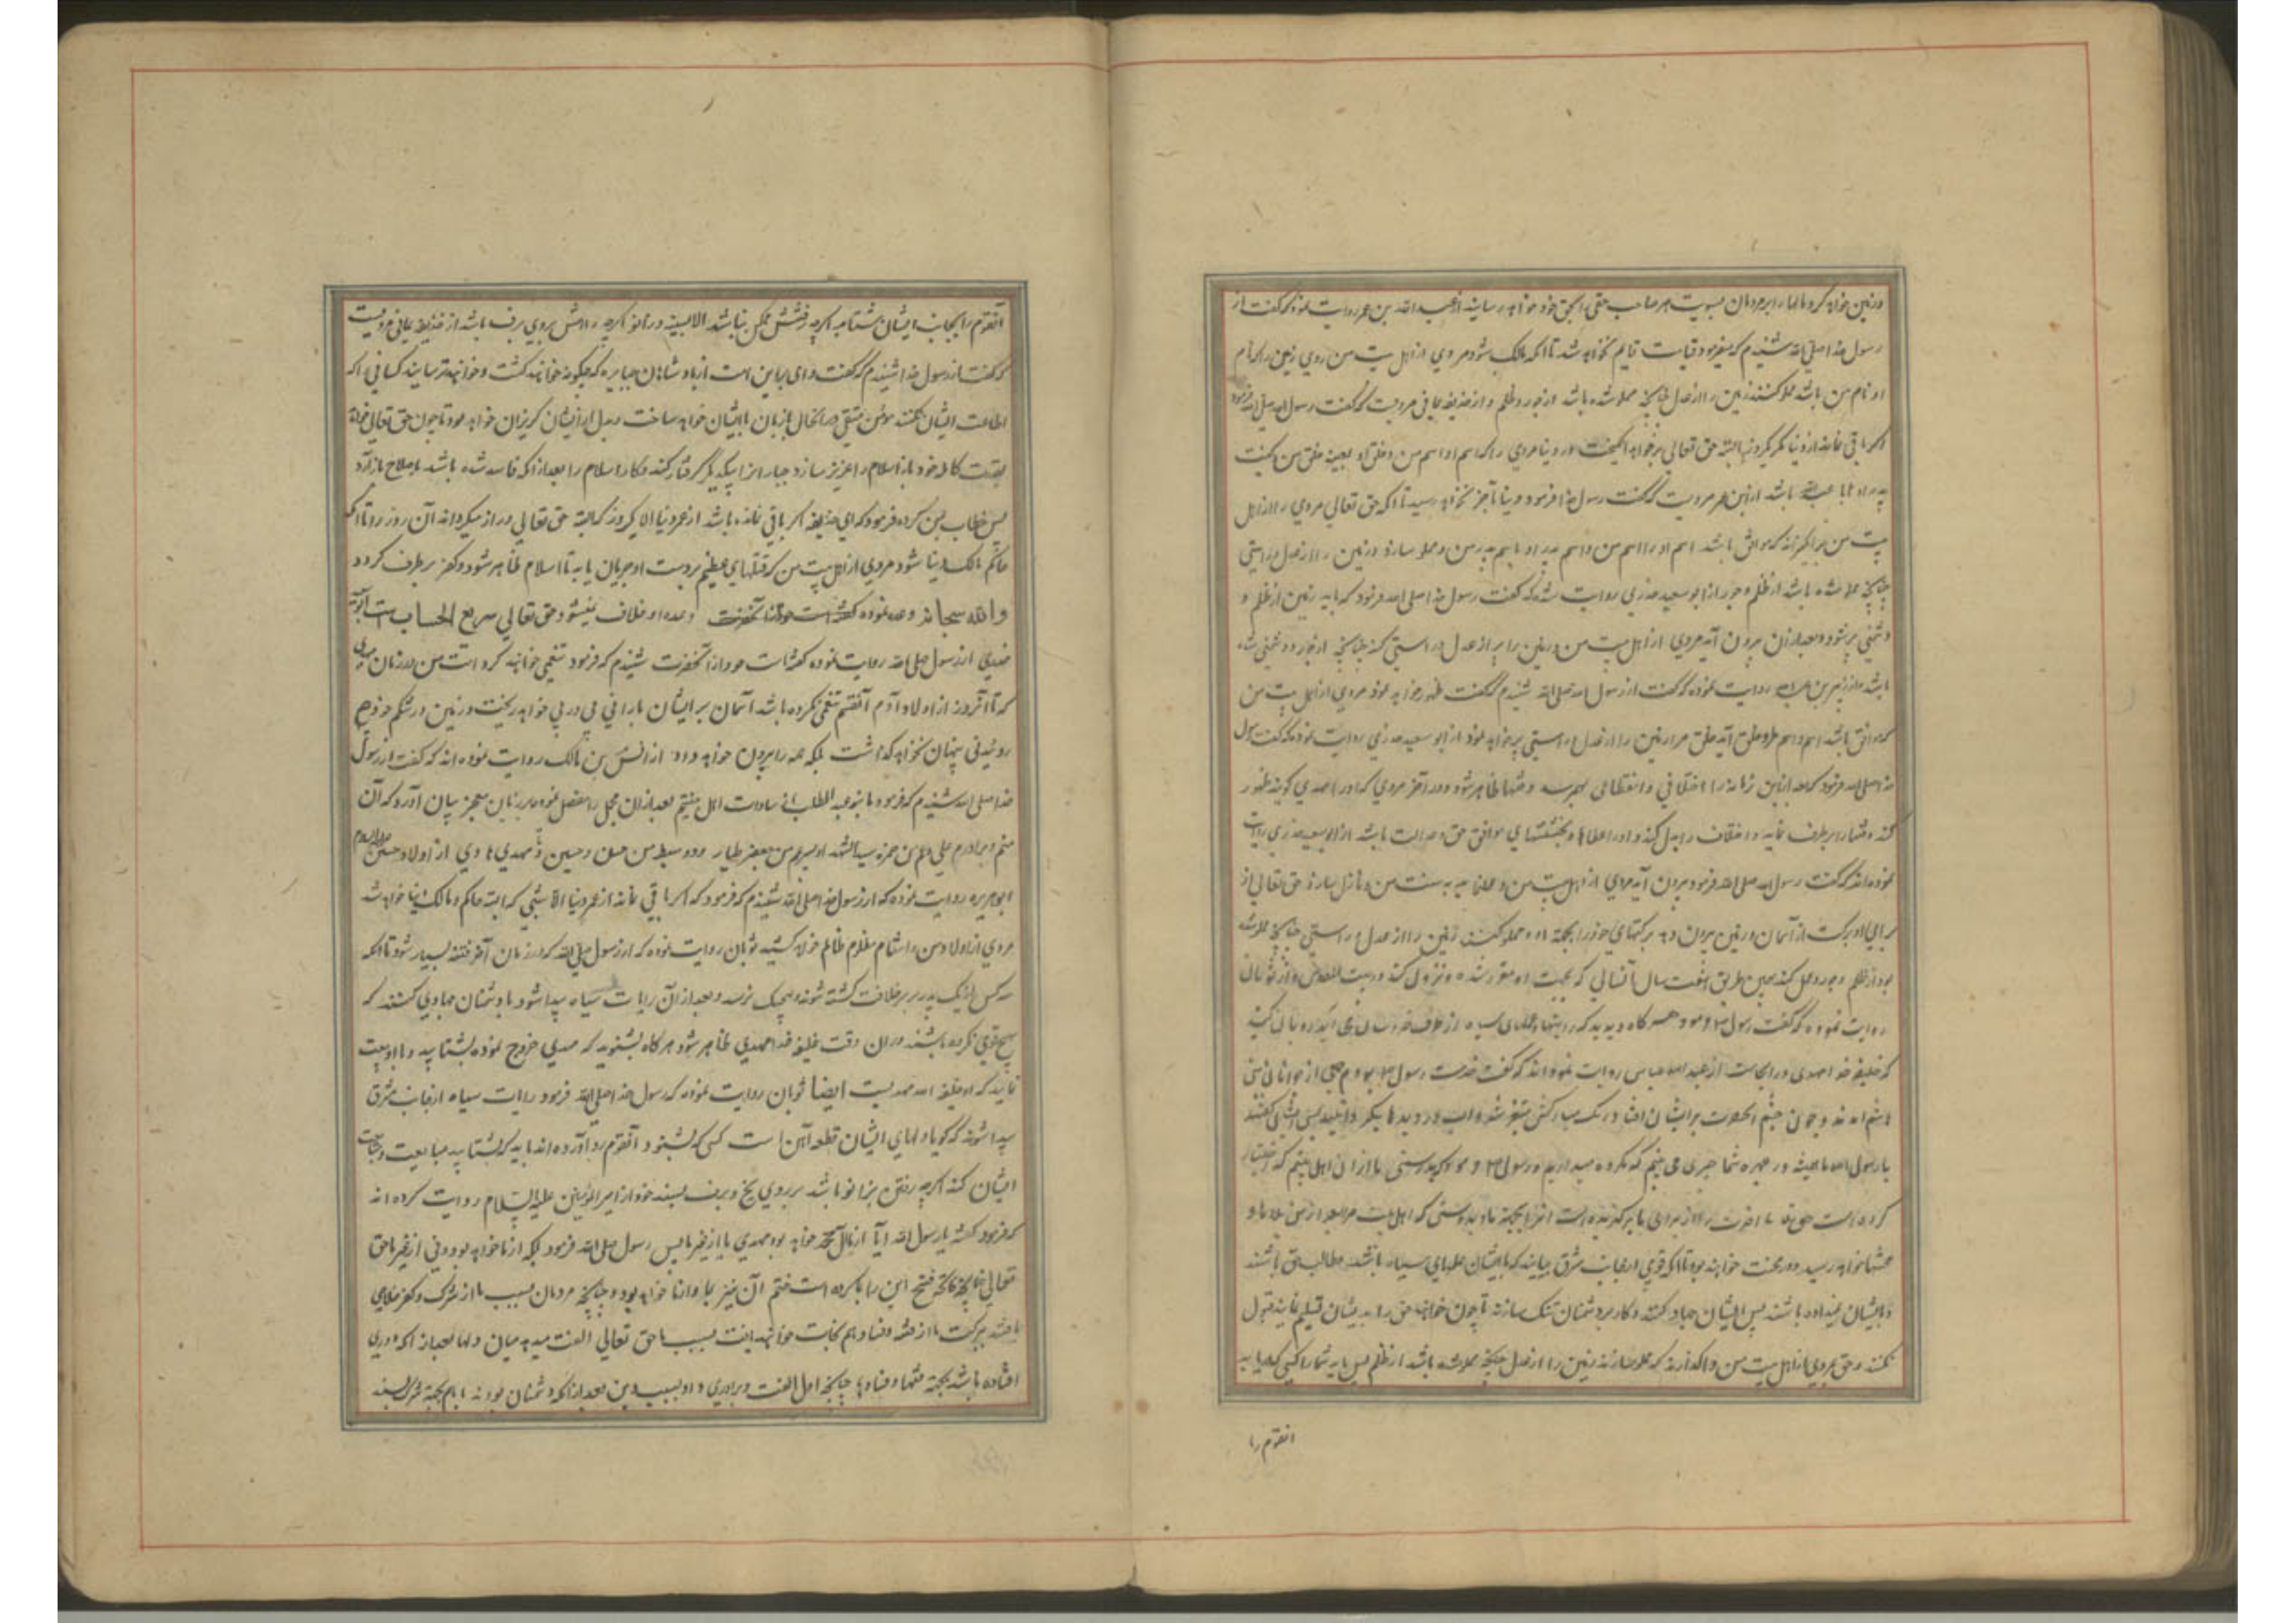 در زمین خواهد کرد مالها را بر مردمان بسویت هر صاحب حقی را بحق خود خواهد رسانید از عبد الله بن عمر روایت نموده که گفت از
رسول خدا صلی الله شنیدم که میفرمود قیامت قایم نخواهد شد تا آنکه مالک شود مردی از اهل بیت من روی زمین را که نام
او نام من باشد مملو کنند زمین را از عدل چنانچه مملو شده باشد از جور و ظلم و از حذیفه یمانی مرویست که گفت رسول الله صلی الله فرموده
اگر باقی نماند از دنیا مگر یکروز البته حق تعالی بر خواهد انگیخت در دنیا مردی را که اسم او اسم من و خلق او بعینه خلق من کنیت
باشد از ابن عمر مرویست که گفت رسول خدا فرمود دنیا بآخر نخواهد رسید تا آنکه حق تعالی مردی را از اهل
بیت من برانگیزاند که موافق باشد اسم او را اسم من و اسم پدر او باسم پدر من و مملو سازد زمین را از عدل و راستی
چنانچه مملو شده باشد از ظلم و جور از ابو سعید خدری روایت شده که گفت رسول خدا صلی الله فرمود که باید زمین از ظلم و
دشمنی پر شود و بعد از آن بیرون آید مردی از اهل بیت من و زمین را پر از عدل و راستی کند چنانچه از جور و دشمنی شده
باشد و از زر بن عبد الله روایت نموده که گفت از رسول الله صلی الله شنیدم که گفت ظهور خواهد نمود مردی از اهل بیت من
که موافق باشد اسم و اسم من و خلق آید خلق مرا زمین را از عدل و راستی پر خواهد نمود از ابو سعید خدری روایت نموده که گفت رسول
خدا صلی الله فرمود که بعد از این زمانه را اختلافی و انقطاعی بهمرسد و فتنها ظاهر شود و در آخر مردی که او را مهدی گویند ظهور
کند و فتنها را بر طرف نماید و اختلاف را بدل کند و او را عطاها و بخششهای موافق حق و عدالت باشد از ابو سعید خدری روایت
نموده‌اند که گفت رسول الله صلی الله فرمود بیرون آید مردی از اهل بیت من و عمل نماید به سنت من و نازل سازد حق تعالی از
برای او برکت از آسمان و زمین بیرون دهد برکتهای خود را بجهة او و مملو کنند زمین را از عدل و راستی چنانچه مملو شده
بود از ظلم و جور و عمل کند بهمین طریق هفت سال آنسالی که بجهت او مقرر شده و نزول کند در بیت المقدس و از ثوبان
روایت نموده که گفت رسول فرمود هر گاه دیدید که رایتها و علمهای سیاه از طرف خراسان می آید رو بآن کنید
که خلیفه خدا مهدی در آنجاست از عبد الله عباس روایت نموده‌اند که گفت خدمت رسول بودم جمعی از جوانان بنی
هاشم آمدند و چون چشم آنحضرت بر ایشان افتاد رنگ مبارکش متغیر شده اب در دیدها بگردانید پس گفتند
یا رسول الله باعث در چهره شما چیزی می بینیم که مکروه میدارید رسول فرمود بدرستی ما از آن اهل بیتیم که اختیار
کرده است حق تعالی آخرت را از برای ما برگزیده است آنرا بجهة ما و بدرستی که اهل بیت مرا بعد از من بلاها و
محنتها خواهد رسید و در محنت خواهند بود تا آنکه قومی از جانب مشرق بیایند که با ایشان علمهای سیاه باشد و طالب حق باشند
و بایشان نداده باشند پس ایشان جهاد کنند و کار بر دشمنان تنگ سازند تا چون خواهند حق را به ایشان تسلیم نمایند قبول
نکنند و حق بمردی از اهل بیت من واگذارند که مملو سازند زمین را از عدل چنانچه مملو شده باشد از ظلم پس باید شما را کسی که دریابد
انقوم را
آنقوم را بجانب ایشان بشتابید اگر چه رفتنش ممکن نباشد الا بسینه و زانو اگر چه راهش بروی برف باشد از حذیفه یمانی مرویست
که گفت از رسول خدا شنیدم که گفت وای بر این امت از پادشاهان جبابره که چگونه خواهند کشت و خواهند ترسانید کسانی را که
اطاعت ایشان نکنند مؤمن متقی در آنحال بزبان با ایشان خواهد ساخت و بدل از ایشان گریزان خواهد بود تا چون حق تعالی خواهد
بقدرت کامله خود باز اسلام را عزیز سازد جباران را بیکدیگر گرفتار کند و کار اسلام را بعد از آنکه فاسد شده باشد باصلاح باز آرد
پس خطاب بمن کرده فرمود که ای حذیفه اگر باقی نمانده باشد از عمر دنیا الا یکروز که البته حق تعالی دراز میگرداند آن روز را تا آنکه
حاکم و مالک دنیا شود مردی از اهل بیت من که قتلهای عظیم بر دست او جریان یابد تا اسلام ظاهر شود و کفر بر طرف گردد
و الله سبحانه وعده نموده وعده او خلاف نمیشود حق تعالی سریع الحساب است
خدری از رسول صلی الله روایت نموده گفت از آنحضرت شنیدم که فرمود تنعمی خواهند کرد امت من در زمان مهدی
که تا آنروز از اولاد آدم آنقسم تنعمی نکرده باشد آسمان بر ایشان بارانی پی در پی خواهد ریخت و زمین در شکم خود هیچ
روئیدنی پنهان نخواهد گذاشت بلکه همه را بیرون خواهد داد از انس بن مالک روایت نموده‌اند که گفت از رسول
خدا صلی الله شنیدم که فرمود ما بنو عبد المطلب از سادات اهل بهشتیم بعد از آن مجمل را مفصل نموده بر زبان معجز بیان آورد که آن
منم و برادرم علی و عم من حمزه سید الشهدا و پسر عم من جعفر طیار و دو سبط من حسن و حسین و مهدی هادی از اولاد حسین علیه السلام
ابو هریره روایت نموده که از رسول خدا صلی الله شنیدم که فرمود که اگر باقی نماند از عمر دنیا الا شبی که البته حاکم و مالک دنیا خواهد شد
مردی از اولاد من و انتقام مظلوم از ظالم خواهد کشید ثوبان روایت نموده که از رسول صلی الله که در زمان آخر فتنه بسیار شود تا آنکه
سه کس از یک پدر بر سر خلافت کشته شوند و بهیچیک نرسد و بعد از آن رایات سیاه پیدا شود با دشمنان جهادی کنند که
هیچ قومی نکرده باشند در آن وقت خلیفه خدا مهدی ظاهر شود هر گاه بشنوید که مهدی خروج نموده بشتابید و با او بیعت
نمایید که او خلیفه الله مهدیست ایضا ثوبان روایت نموده که رسول خدا صلی الله فرمود رایات سیاه از جانب مشرق
پیدا شوند که گویا دلهای ایشان قطعه آهن است کسی که بشنود آنقوم رو آورده‌اند باید که بشتابد مبایعت و متابعت
ایشان کند اگر چه رفتن بزانو باشد بر روی یخ و برف بسینه خود از امیر المؤمنین علیه السلام روایت کرده‌اند
که فرمود گفتم یا رسول الله آیا از آل محمد خواهد بود مهدی یا از غیر ما پس رسول صلی الله فرمود بلکه از ما خواهد بود و نی از غیر ما حق
تعالی چنانچه فتح این را بما کرده است ختم آن نیز بما و از ما خواهد بود و چنانچه مردمان بسبب ما از شرک و کفر خلاصی
یافتند ببرکت ما از فتنه و فساد هم نجات خواهند یافت بسبب ما حق تعالی الفت میدهد میان دلها بعد از آنکه دوری
افتاده باشد بجهة فتنها و فسادها چنانچه اول الفت و برادری داد بسبب دین بعد از آنکه دشمنان بودند با هم بجهة شرک